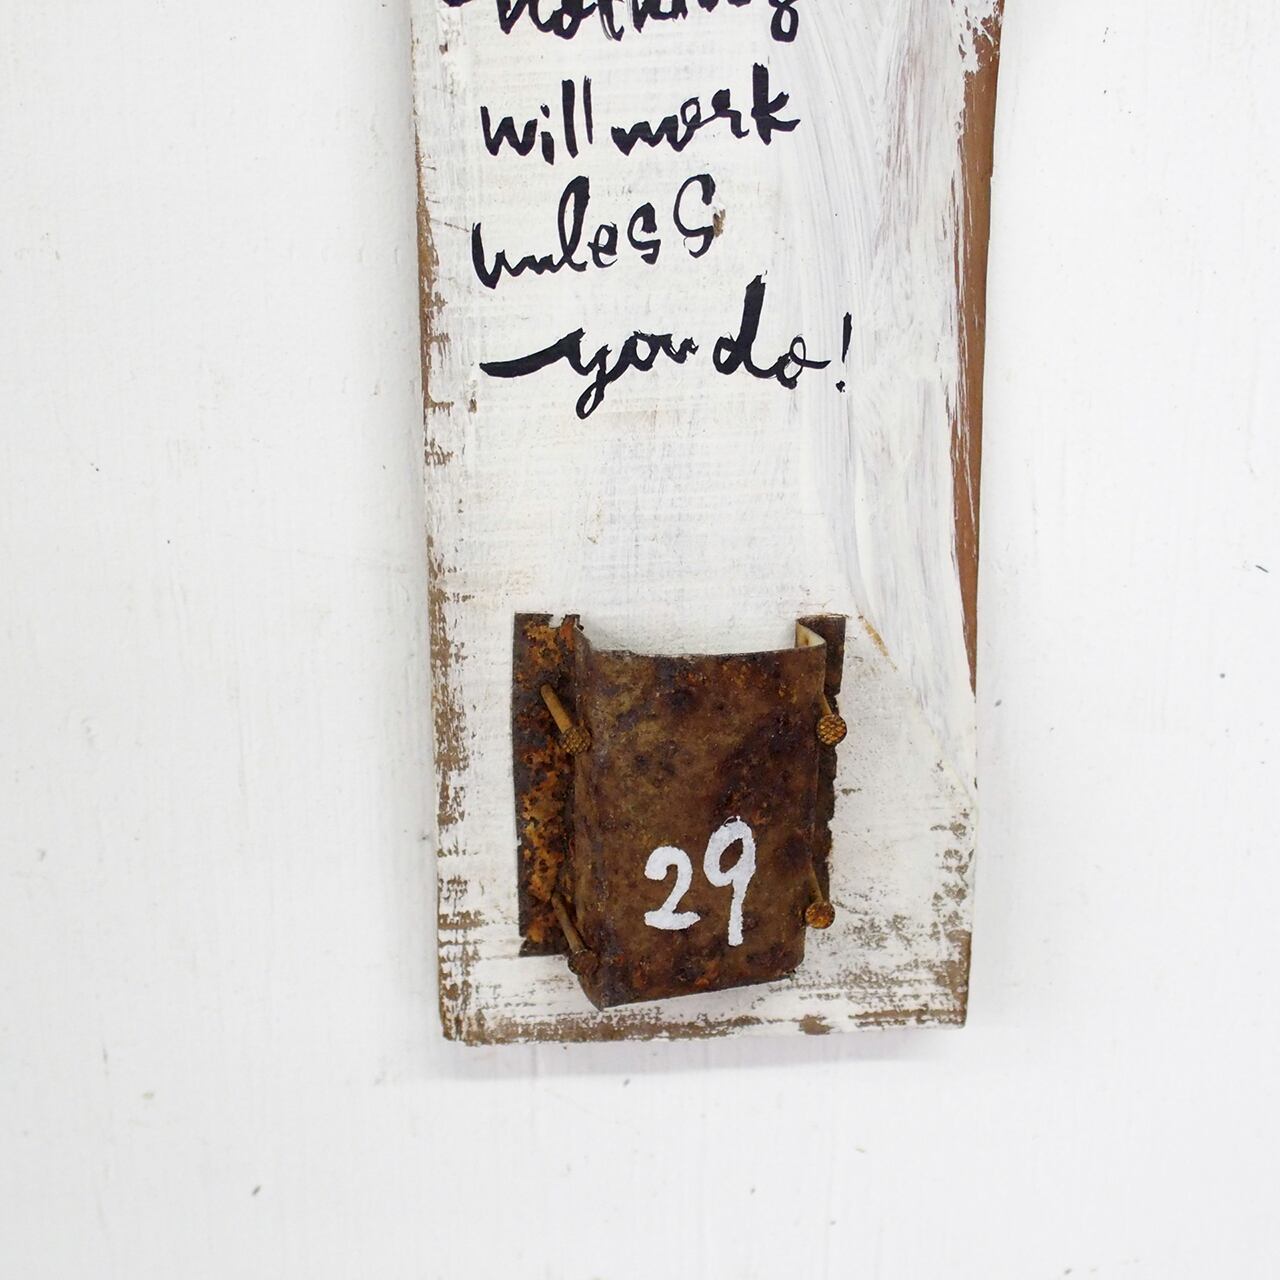 nothing
will work
unless
you do!
29